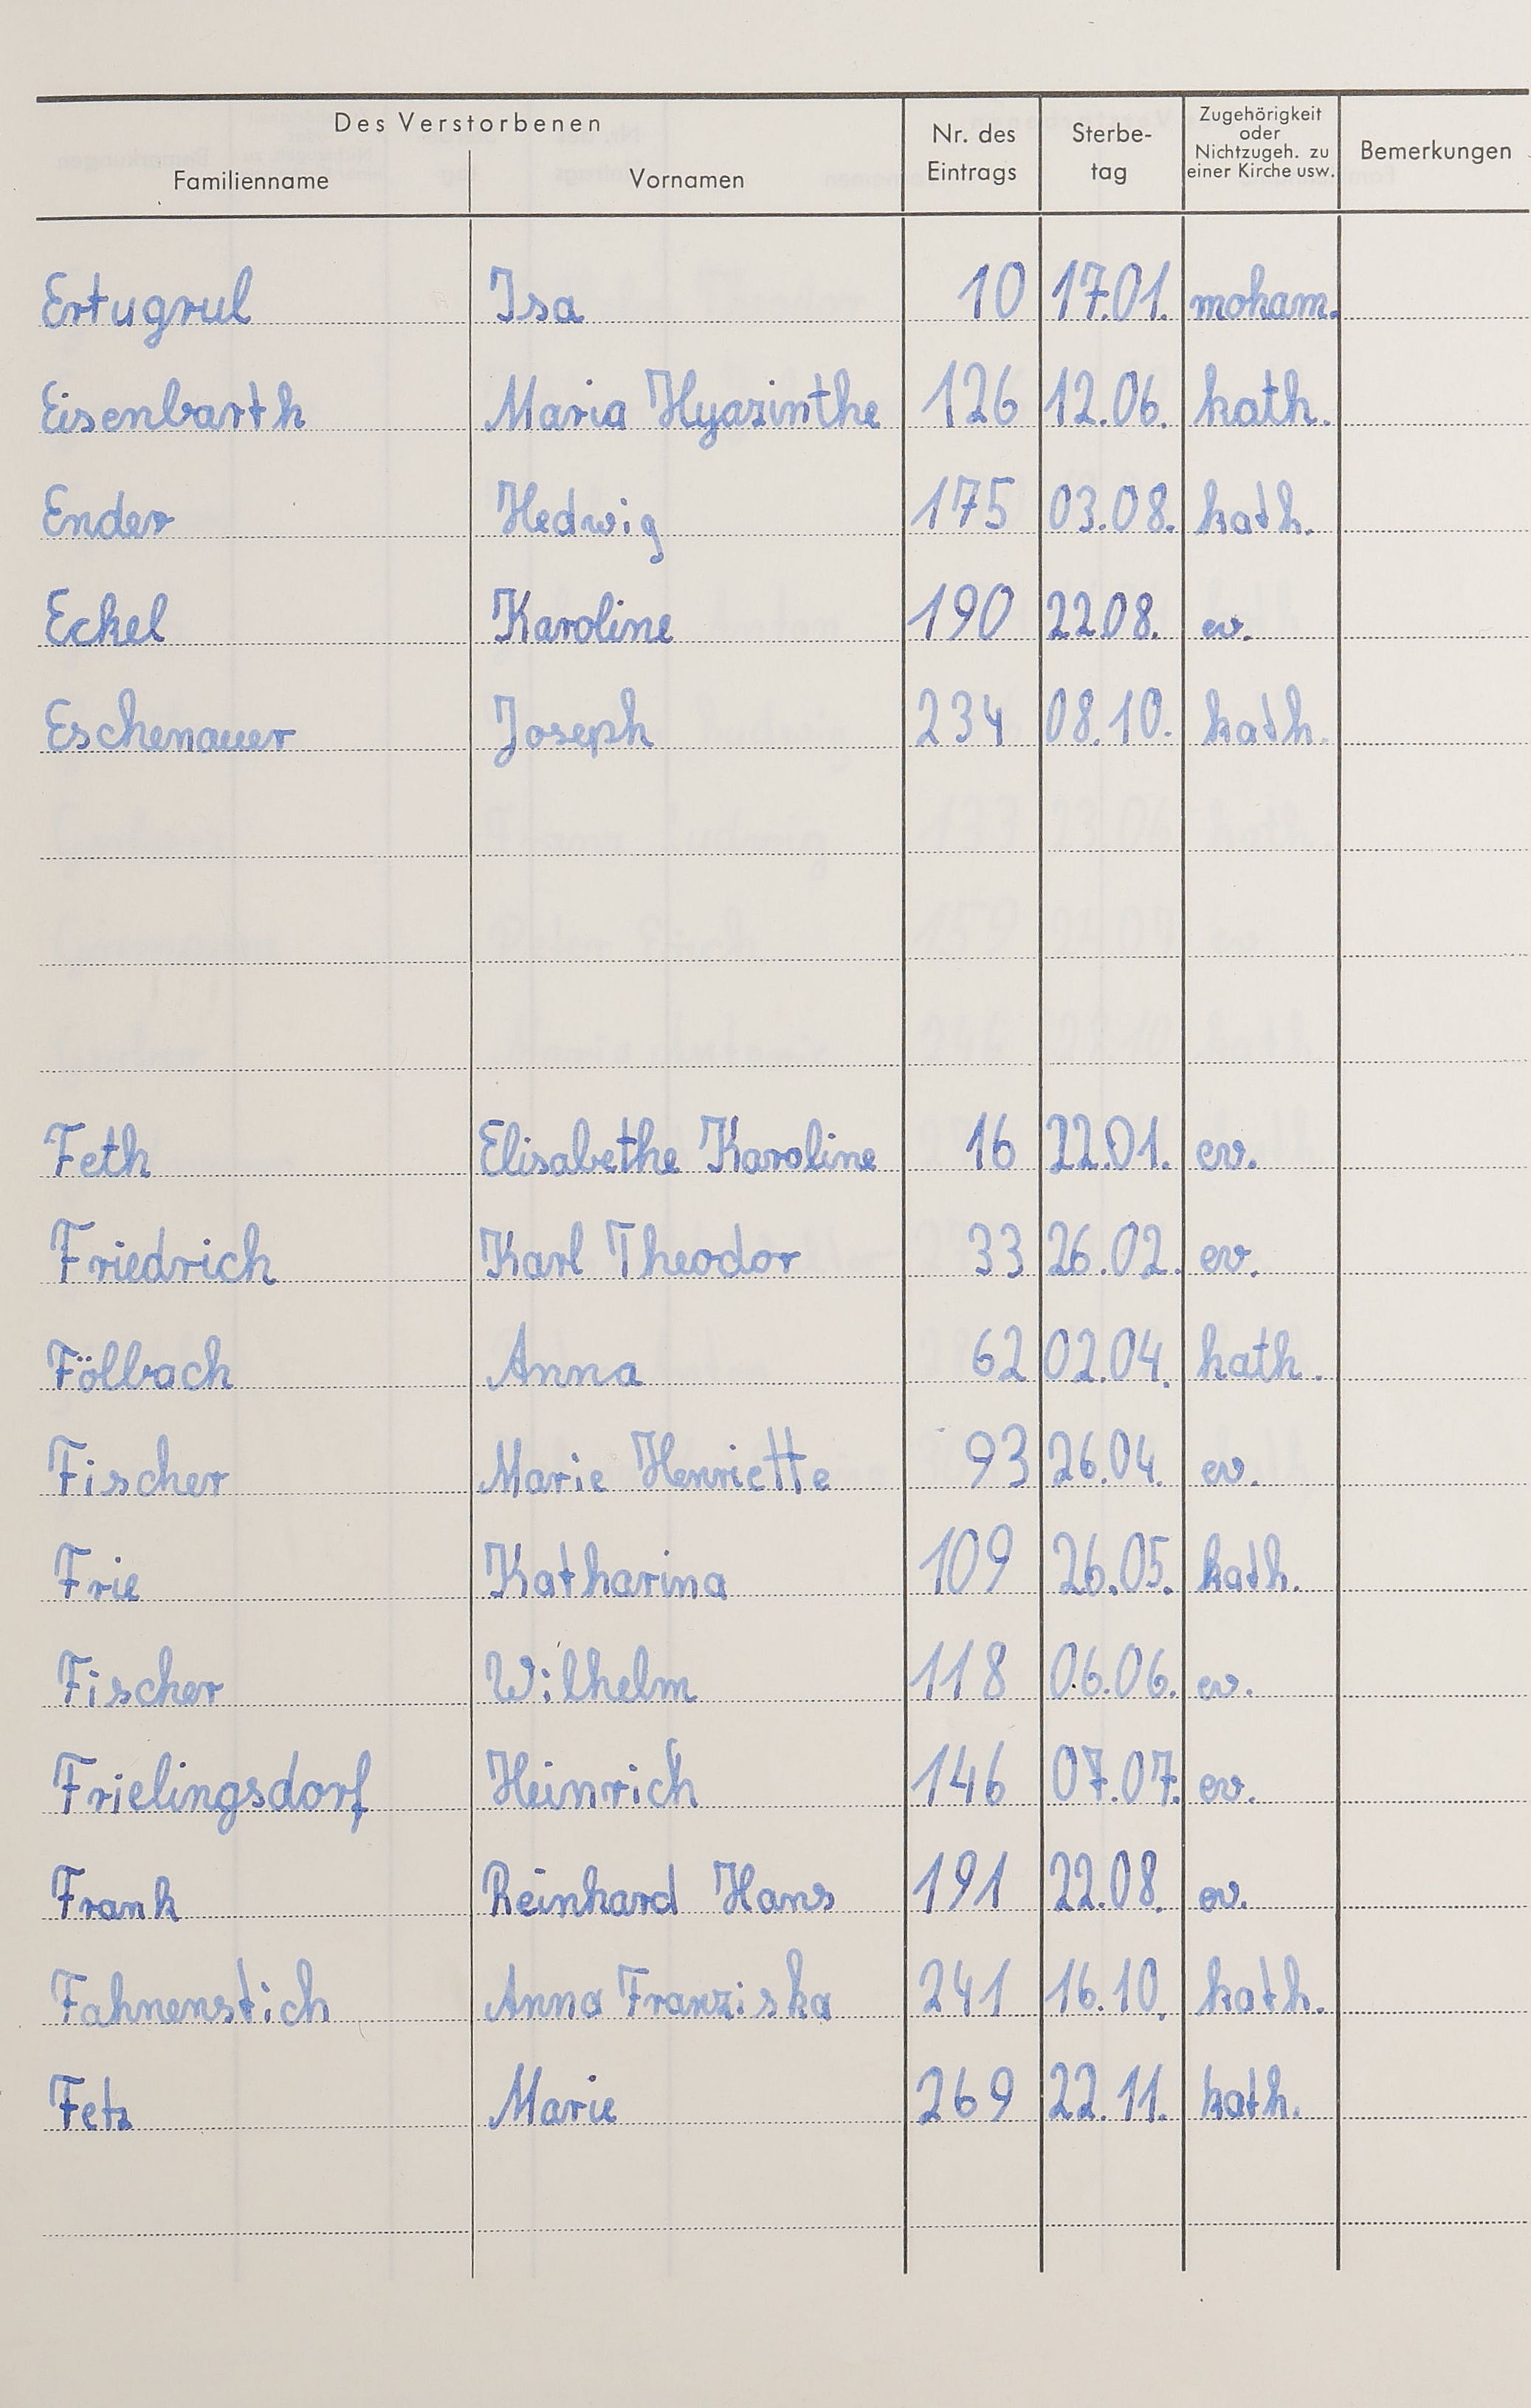 Des Verstorbenen
Familienname Vornamen Nr. des Eintrags Sterbe-tag Zugehörigkeit oder Nichtzugeh. zu einer Kirche usw. Bemerkungen
Ertugrul Isa 10 17.01. moham.
Eisenbarth Maria Hyazinthe 126 12.06. kath.
Ender Hedwig 175 03.08. kath.
Eckel Karoline 190 22.08. ev.
Eschenauer Joseph 234 08.10. kath.
Feth Elisabethe Karoline 16 22.01. ev.
Friedrich Karl Theodor 33 26.02. ev.
Föllbach Anna 62 02.04. kath.
Fischer Marie Henriette 93 26.04. ev.
Frie Katharina 109 26.05. kath.
Fischer Wilhelm 118 06.06. ev.
Frielingsdorf Heinrich 146 07.07. ev.
Frank Reinhard Hans 191 22.08. ev.
Fahnenstich Anna Franziska 241 16.10. kath.
Fetz Marie 269 22.11. kath.